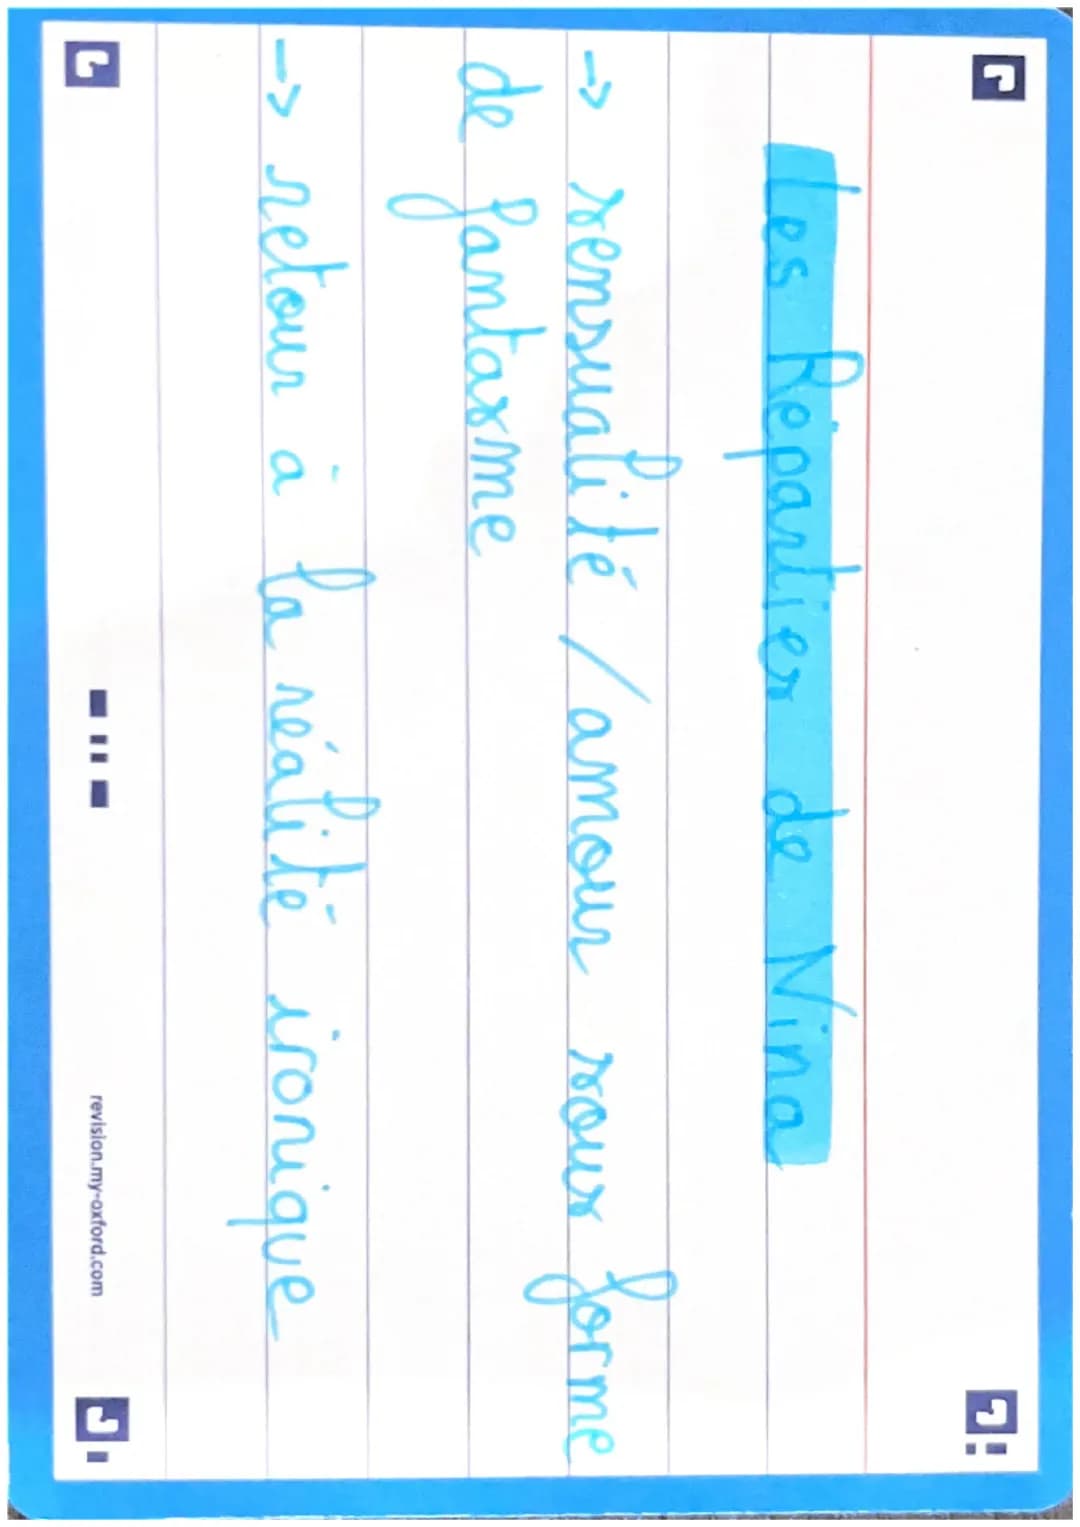 Les Réparties de Nina
-> sensualité / amour sous forme
de fantasme
-> retour à la réalité ironique
revision.my-oxford.com